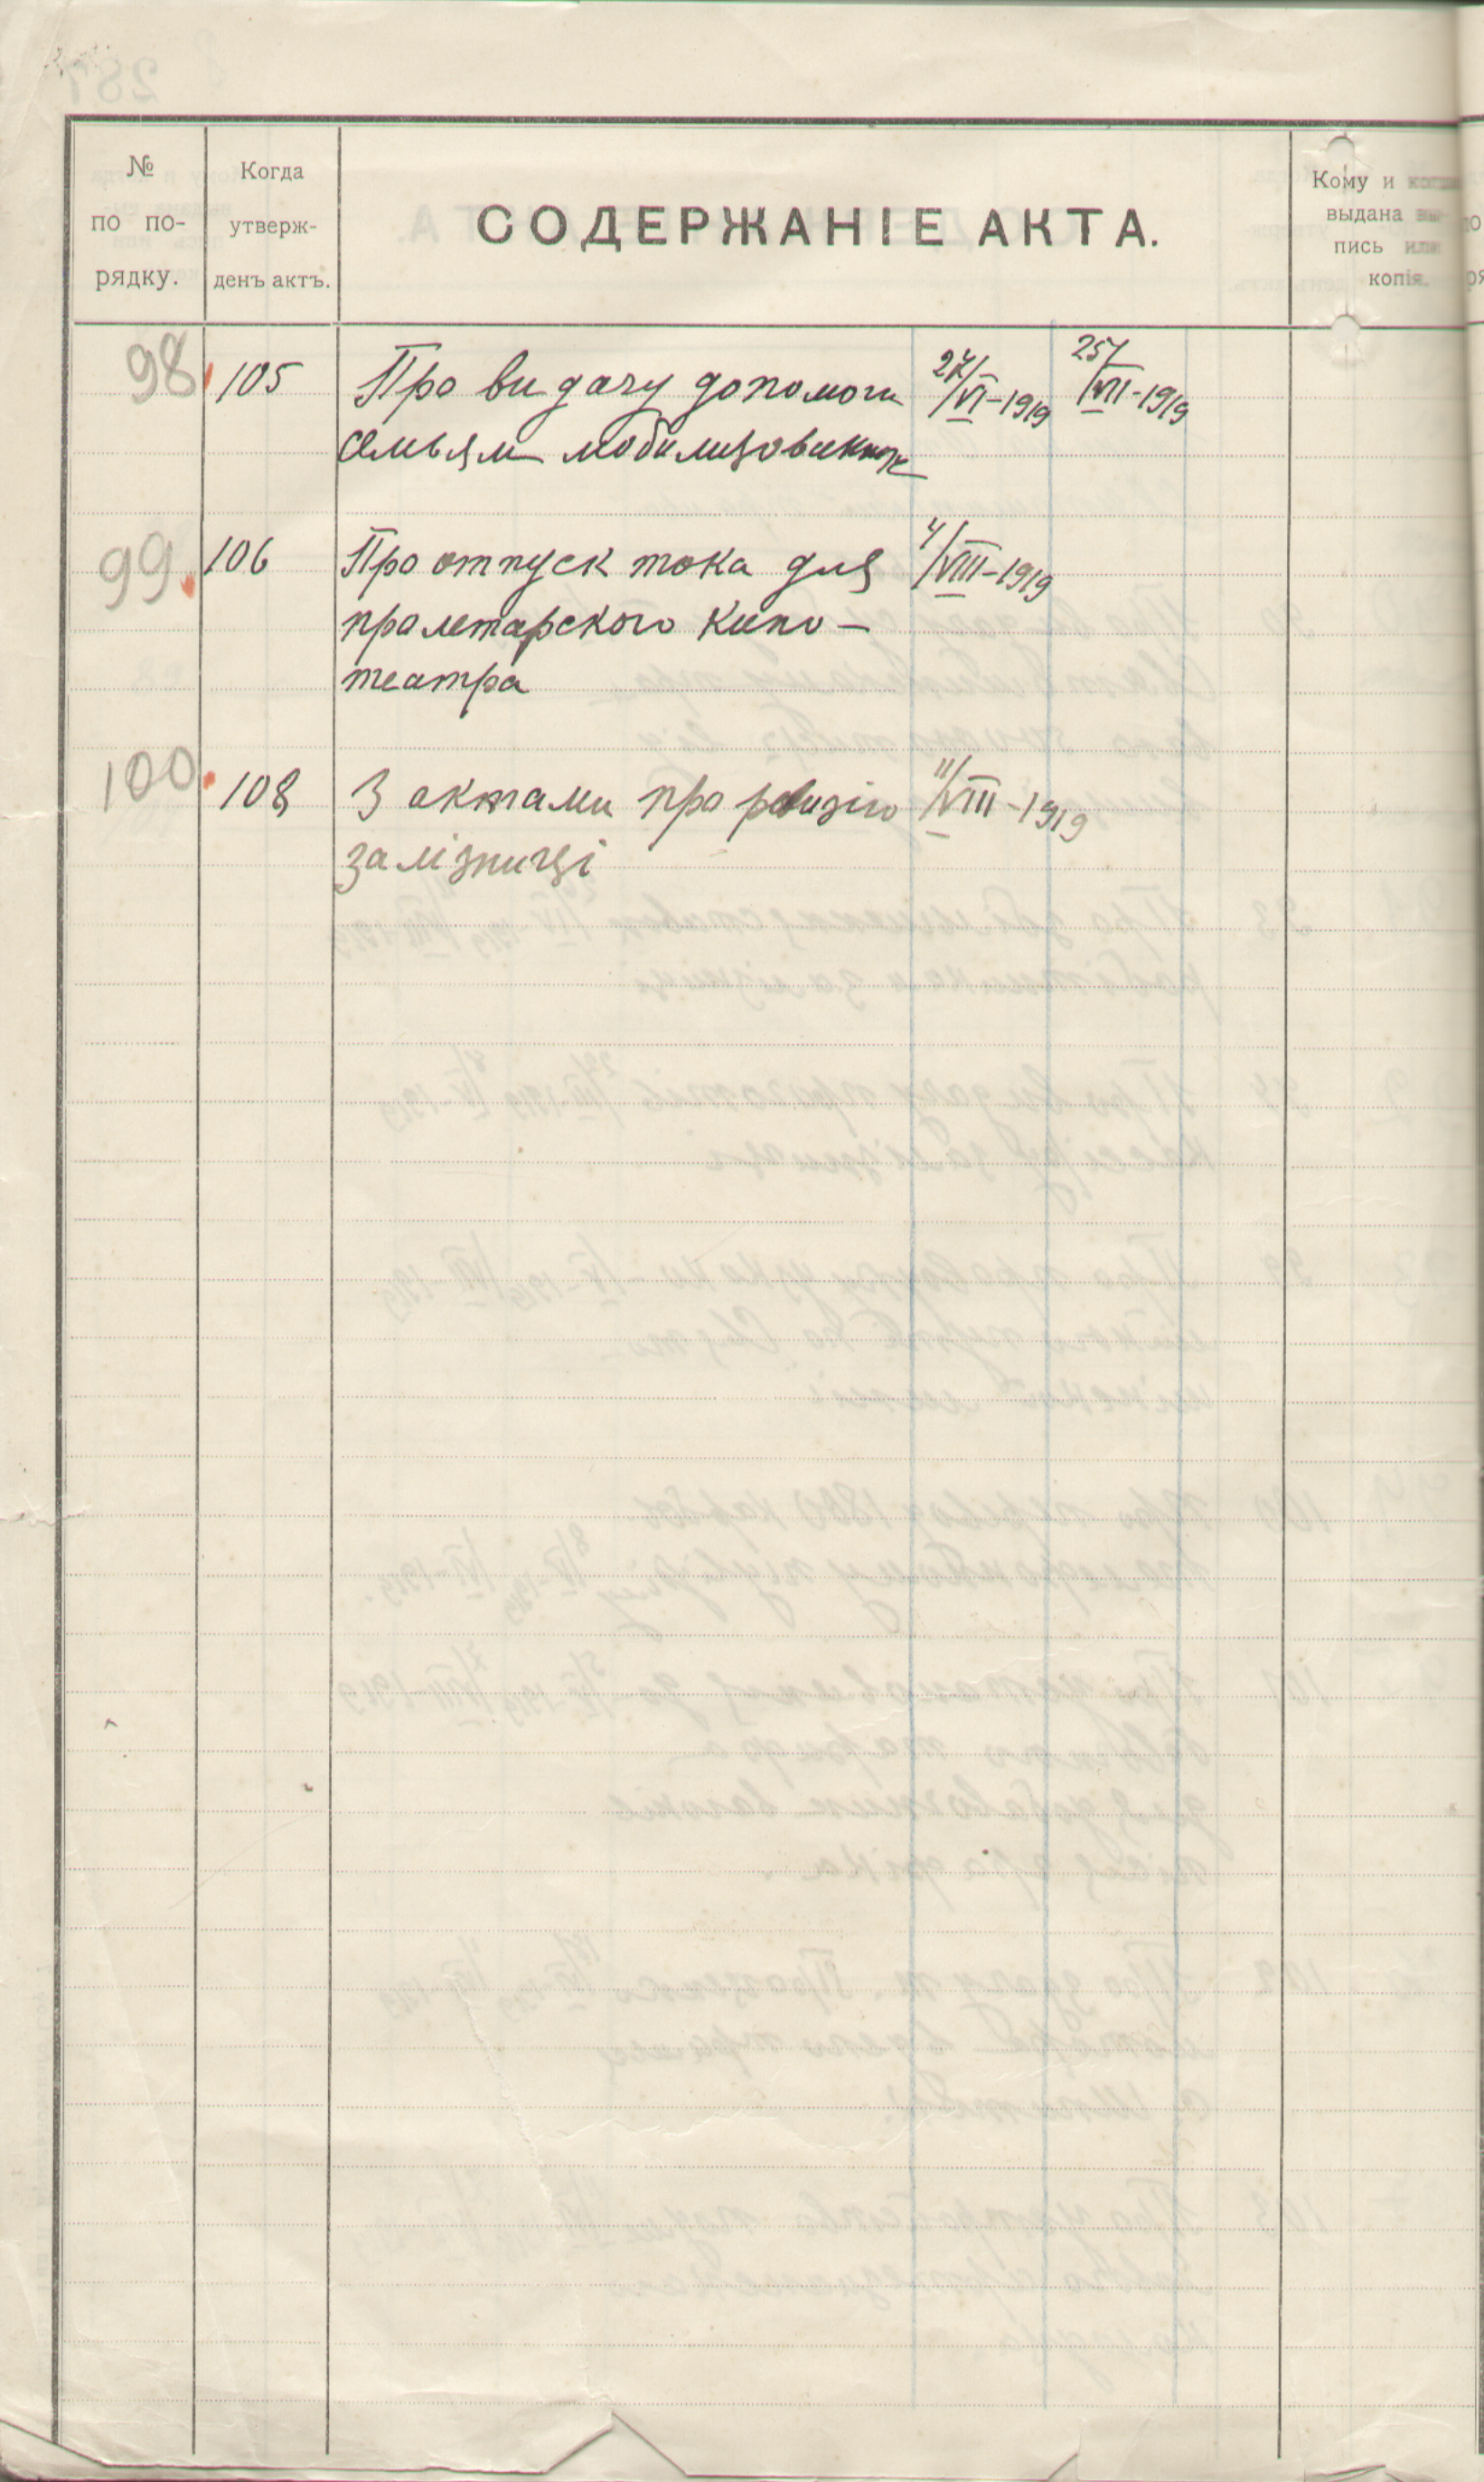 № по по-рядку.
Когда утверж-денъ актъ.
СОДЕРЖАНІЕ АКТА.
Кому и когда
выдана вы-
пись или
копія.
98 105 Про видачу допомоги 27/VI-1919 25/VII-1919
семьям мобилизованних
99. 106 Про отпуск тока для 4/VIII-1919
пролетарского кино-
театра
100. 108 З актами про ревизію 11/VIII-1919
залізниці